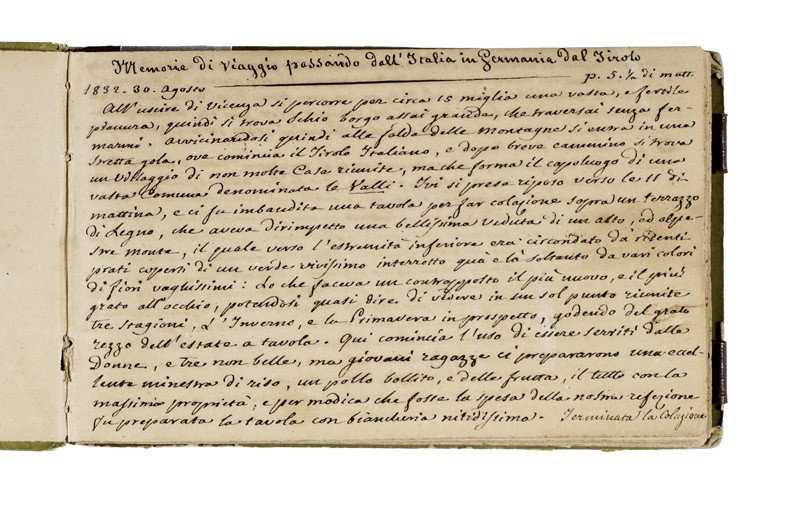 Memorie di Viaggio passando dall'Italia in Germania dal Tirolo
1832. 30. Agosto p. 5. ½ di matt.
All'uscire di Vicenza si percorre per circa 15 miglia una vasta, e fertile
pianura, quindi si trova Schio borgo assai grande, che traversai senza fer-
marmi. Avvicinandosi quindi alle falde delle montagne si entra in una
stretta gola, ove comincia il Tirolo Italiano, e dopo breve cammino si trova
un villaggio di non molte Case riunite, ma che forma il capoluogo di una
vasta Comune denominata le Valli. Ivi si prese riposo verso le 11 di
mattina, e ci fu imbandita una tavola per far colazione sopra un terrazzo
di Legno, che aveva dirimpetto una bellissima veduta di un alto, ed alpe-
stre monte, il quale verso l'estremità inferiore era circondato da ridenti
prati coperti di un verde vivissimo interrotto quà e là soltanto da varj colori
di fiori vaghissimi: Lo che faceva un contrapposto il più nuovo, e il più
grato all'occhio, potendosi quasi dire di vedere in un sol punto riunite
tre stagioni, L'Inverno, e la Primavera in prospetto, godendo del grato
rezzo dell'estate a tavola. Qui comincia l'uso di essere serviti dalle
Donne, e tre non belle, ma giovani ragazze ci prepararono una eccel-
lente minestra di riso, un pollo bollito, e delle frutta, il tutto con la
massima proprietà, e per modica che fosse la spesa della nostra refezione
fu preparata la tavola con biancheria nitidissima. Terminata la Colazione